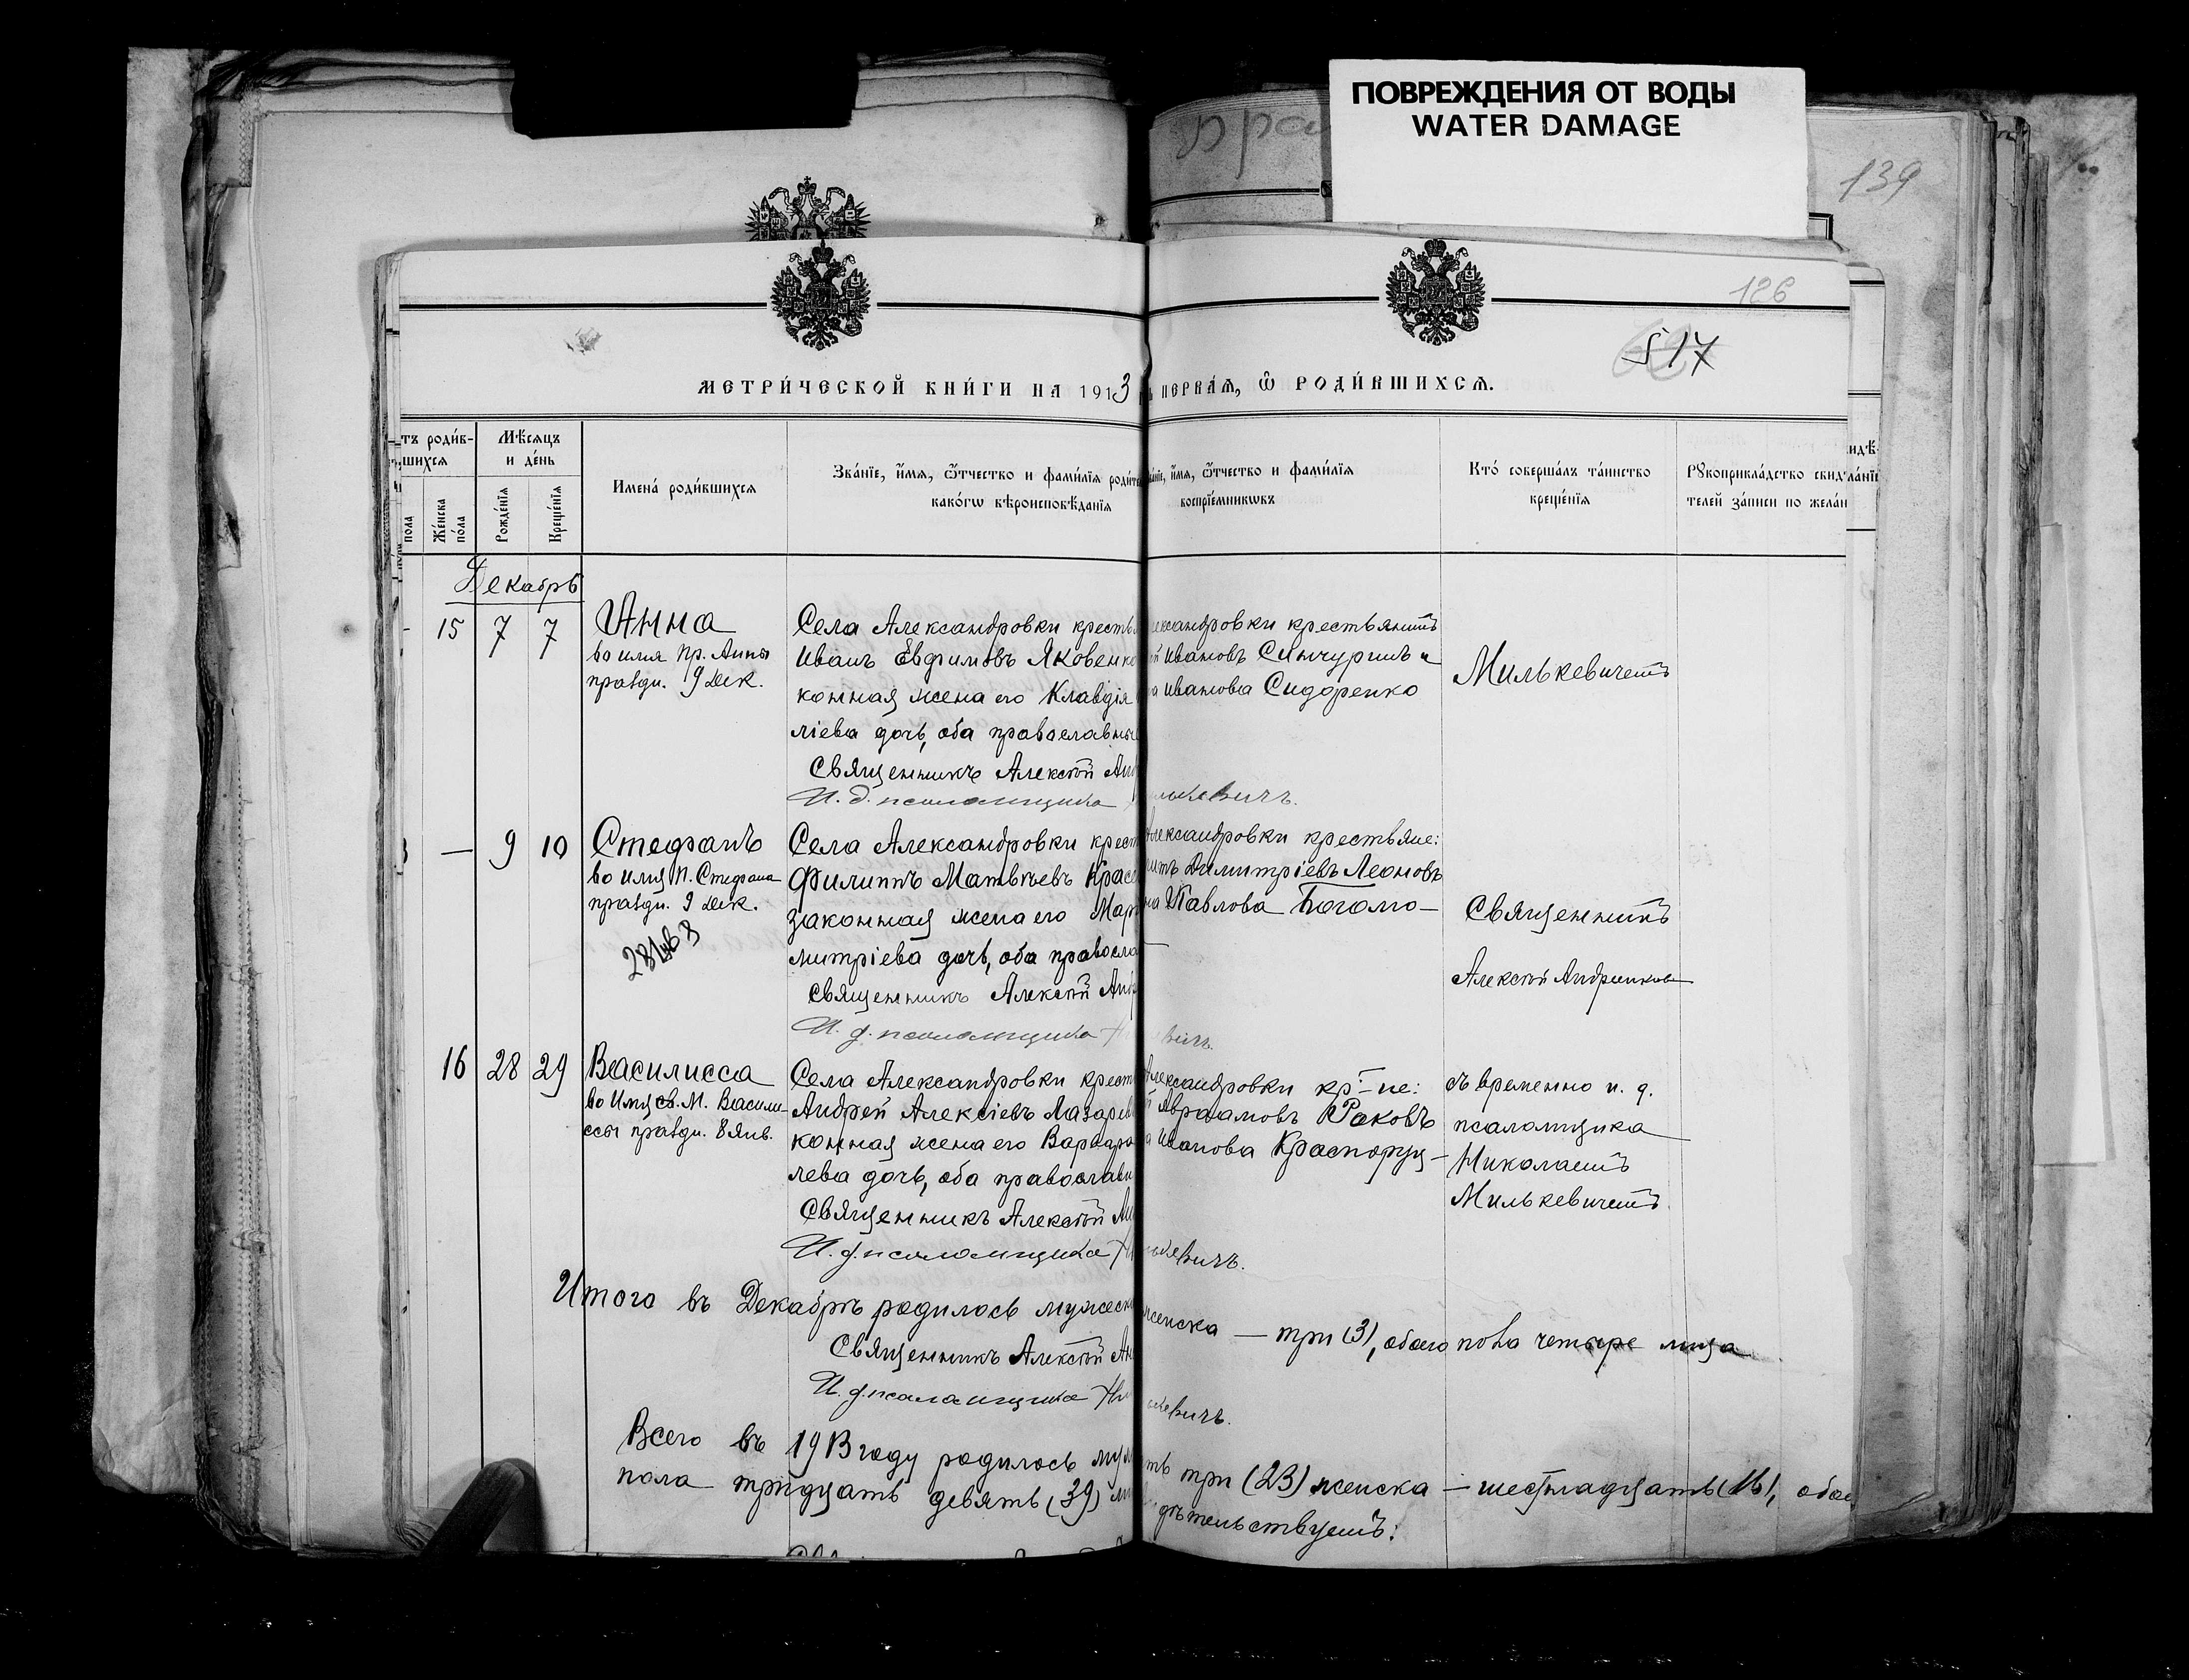 ПОВРЕЖДЕНИЯ ОТ ВОДЫ
WATER DAMAGE
139
126
517
МЕТРИ́ЧЕСКОЙ КНИ́ГИ НА 1913
ПЕРВАѦ, Ѿ РОДИ́ВШИХСѦ.
тъ роди́в-
шихся
Мѣсяцъ
и де́нь
пола
Же́нска
по́ла
Рожде́нїя
Креще́нїя
Имена́ роди́вшихся
Зва́нїе, и́мя, ѻ҆́тчество и фами́лїя роди́те
како́гѡ вѣроисповѣ́данїя
и́мя, ѻ҆́тчество и фами́лїя
воспрїе́мникѡвъ
Кто́ соверша́лъ та́инство
креще́нїя
Рꙋкоприкла́дство свид
телей за́писи по жела́н
Декабрь
15 7 7 Анна
во имя пр. Анны
праздн. 9 Дек.
Села Александровки кресть
Иванъ Евфимовъ Яковенко
конная жена его Клавдія
ліева дочь, оба православны
Священникъ Алексѣй Анд
И. д. псаломщика
лександровки крестьянинъ
Ивановъ Синчугинъ и
Иванова Сидоренко
ькевичъ.
Милькевичемъ
— 9 10 Стефанъ
во имя п. Стефана
праздн. 9 Дек.
Села Александровки крест
Филиппъ Матвѣевъ Красе
законная жена его Мар
митріева дочь, оба правосла
Священникъ Алексѣй Анд
И. д. псаломщика
Александровки крестьяне:
Димитріевъ Леоновъ
на Павлова Богомо-
вичъ.
Священникъ
Алексѣй Андріенков
16 28 29 Василисса
во имя св. М. Васили-
ссы праздн. 8 Янв.
Села Александровки крест
Андрей Алексіевъ Лазарев
конная жена его Варвара
лева дочь, оба православн
Священникъ Алексѣй Ан
И. д. псаломщика
Александровки кр-не:
й Авраамовъ Раковъ
а Иванова Краснорущ-
кевичъ.
съ временно и. д.
псаломщика
Николаемъ
Милькевичемъ.
Итого въ Декабрѣ родилось мужеск
женска — три (3), обоего пола четыре лица
Священникъ Алексѣй Ан
И. д. псаломщика Ни
кевичъ.
Всего въ 1913 году родилось муж
ть три (23) женска — шестнадцать (16), обое
пола тридцать девять (39) ли
дѣтельствуемъ: